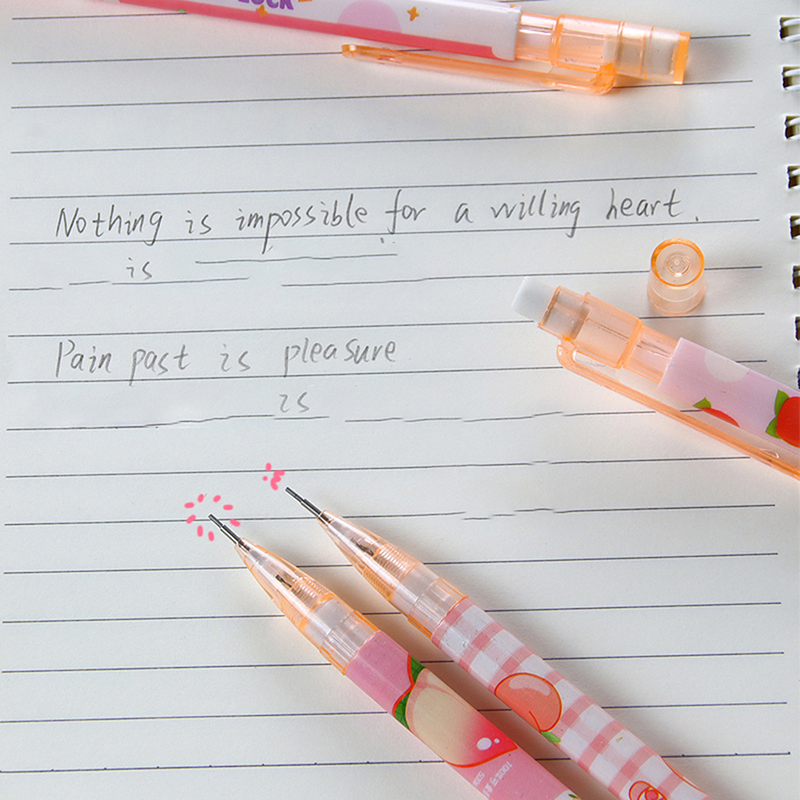 LUCK
Nothing is impossible for a willing heart.
is
Pain past is pleasure
is